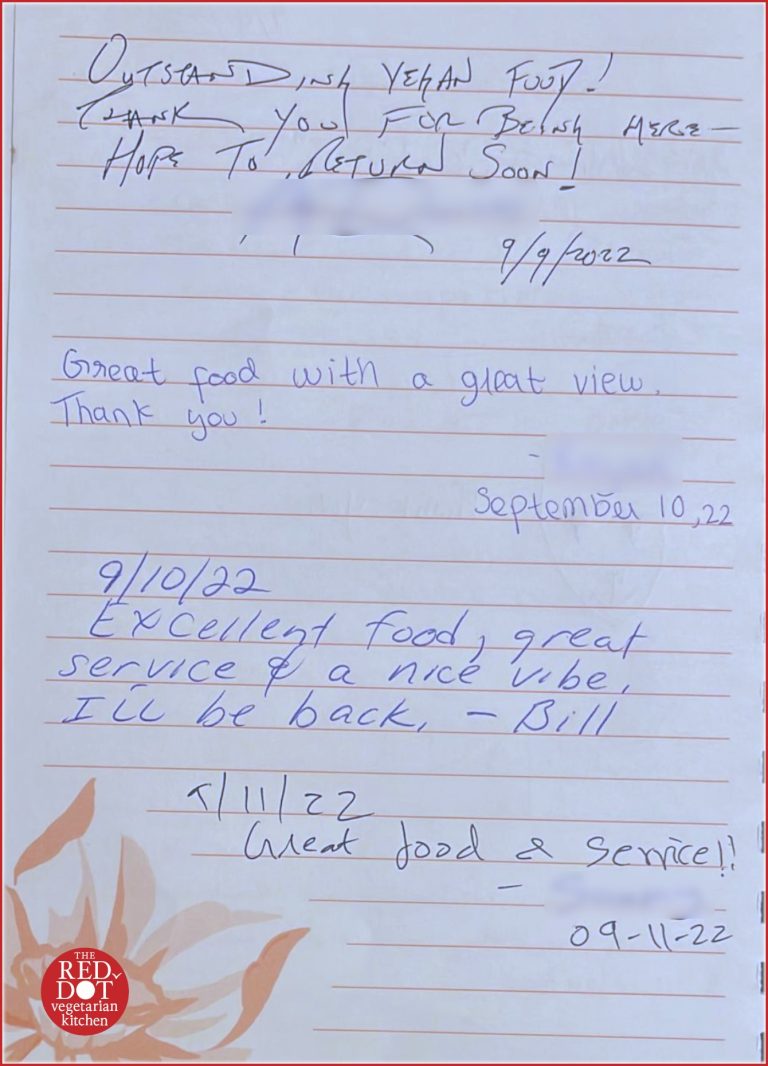 OUTSTANDING VEGAN FOOD!
THANK YOU FOR BEING HERE—
HOPE TO RETURN SOON!
9/9/2022
Great food with a great view.
Thank you!
-
September 10,22
9/10/22
Excellent food, great
service & a nice vibe.
I'll be back. - Bill
/11/22
Great food & service!!
-
09-11-22
THE
RED
DOT
vegetarian
kitchen